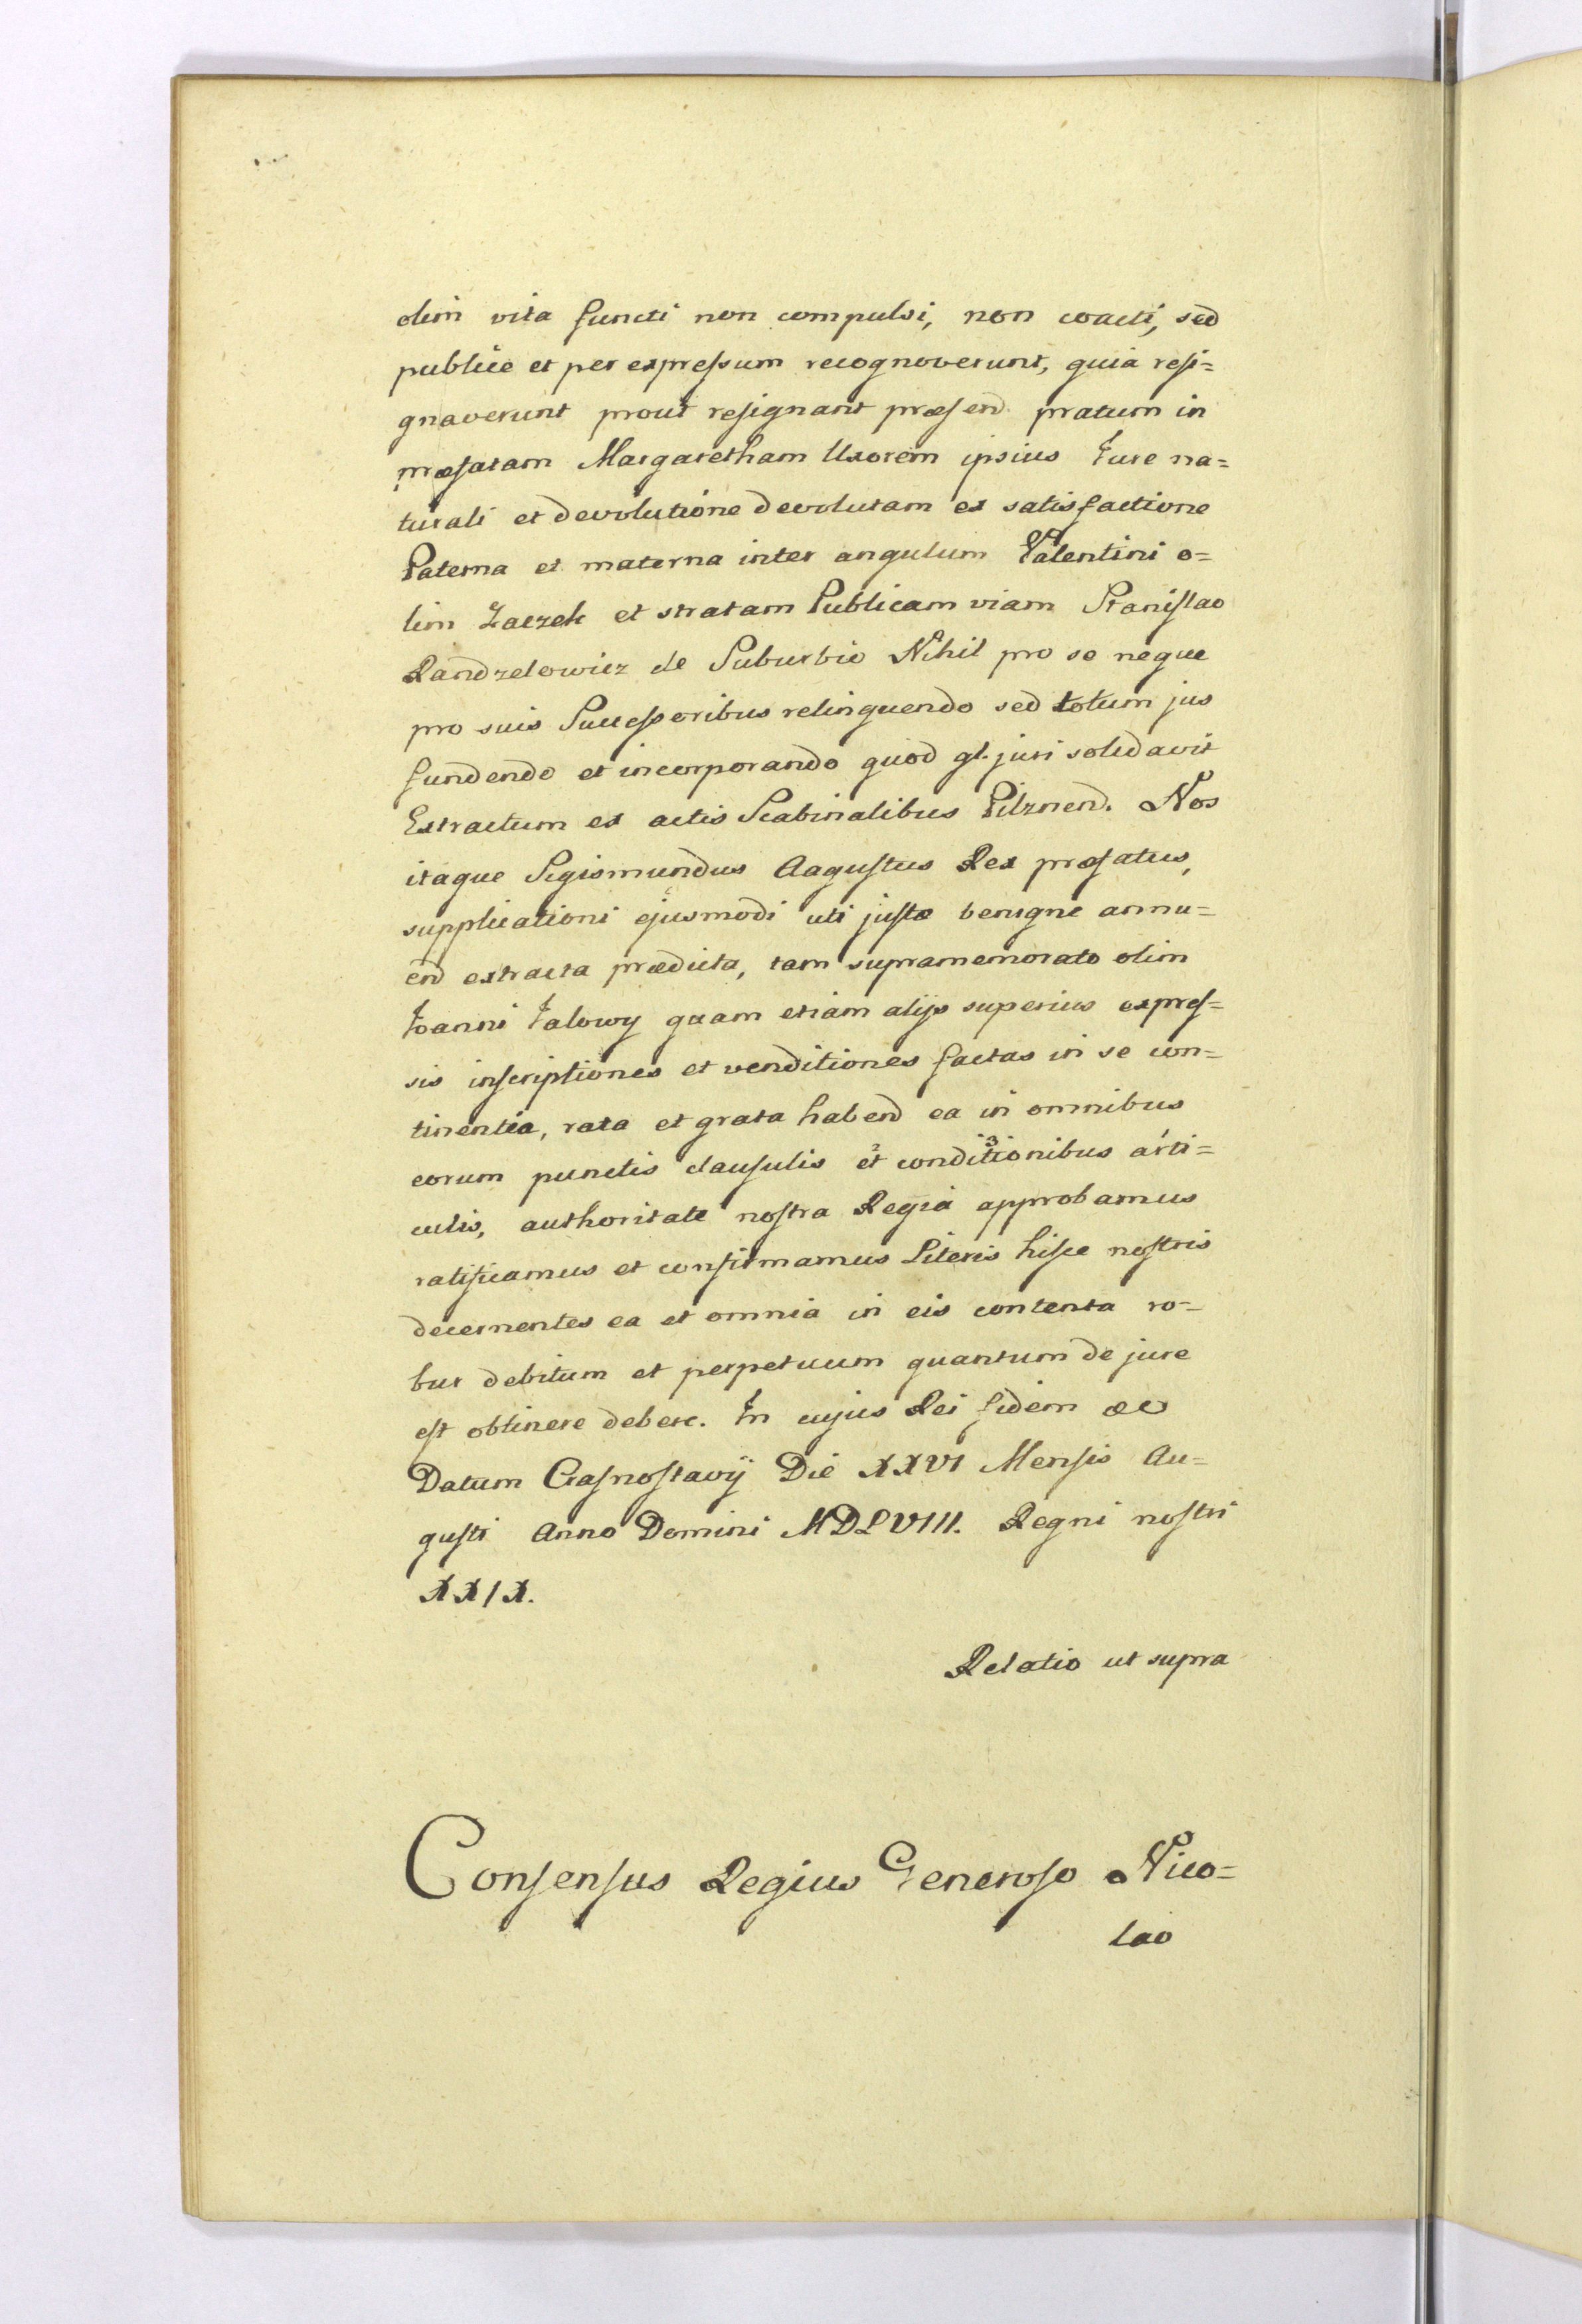 olim vita functi non compulsi, non coacti, sed
publice et per expressum recognoverunt, quia resi=
gnaverunt prout resignant præsend. pratum in
præfatam Margaretham Uxorem ipsius Jure na=
turali et devolutione devolutam ex satisfactione
Paterna et materna inter angulum Valentini o=
lim Zaczek et stratam Publicam viam Stanislao
Randzelowicz de Suburbio Nihil pro se neque
pro suis Successoribus relinquendo sed totum jus
fundendo et incorporando quod gl. juri solidavit
Extractum ex actis Scabinalibus Pilznend. Nos
itaque Sigismundus Aagustus Rex præfatus,
supplicationi ejusmodi uti justæ benigne annu=
end extracta prædicta, tam supramemorato olim
Joanni Jalowy quam etiam alijs superius expres=
sis inscriptiones et venditiones factas in se con=
tinentia, rata et grata habend ea in omnibus
eorum punctis clausulis et conditionibus arti=
culis, authoritate nostra Regia approbamus
ratificamus et confirmamus Literis hisce nostris
decernentes ea et omnia in eis contenta ro=
bur debitum et perpetuum quantum de jure
est obtinere debere. In cujus Rei fidem &c
Datum Crasnostavij Die XXVI Mensis Au=
gusti Anno Domini MDLVIII. Regni nostri
XXIX.
Relatio ut supra
Consensus Regius Generoso Nico=
lao